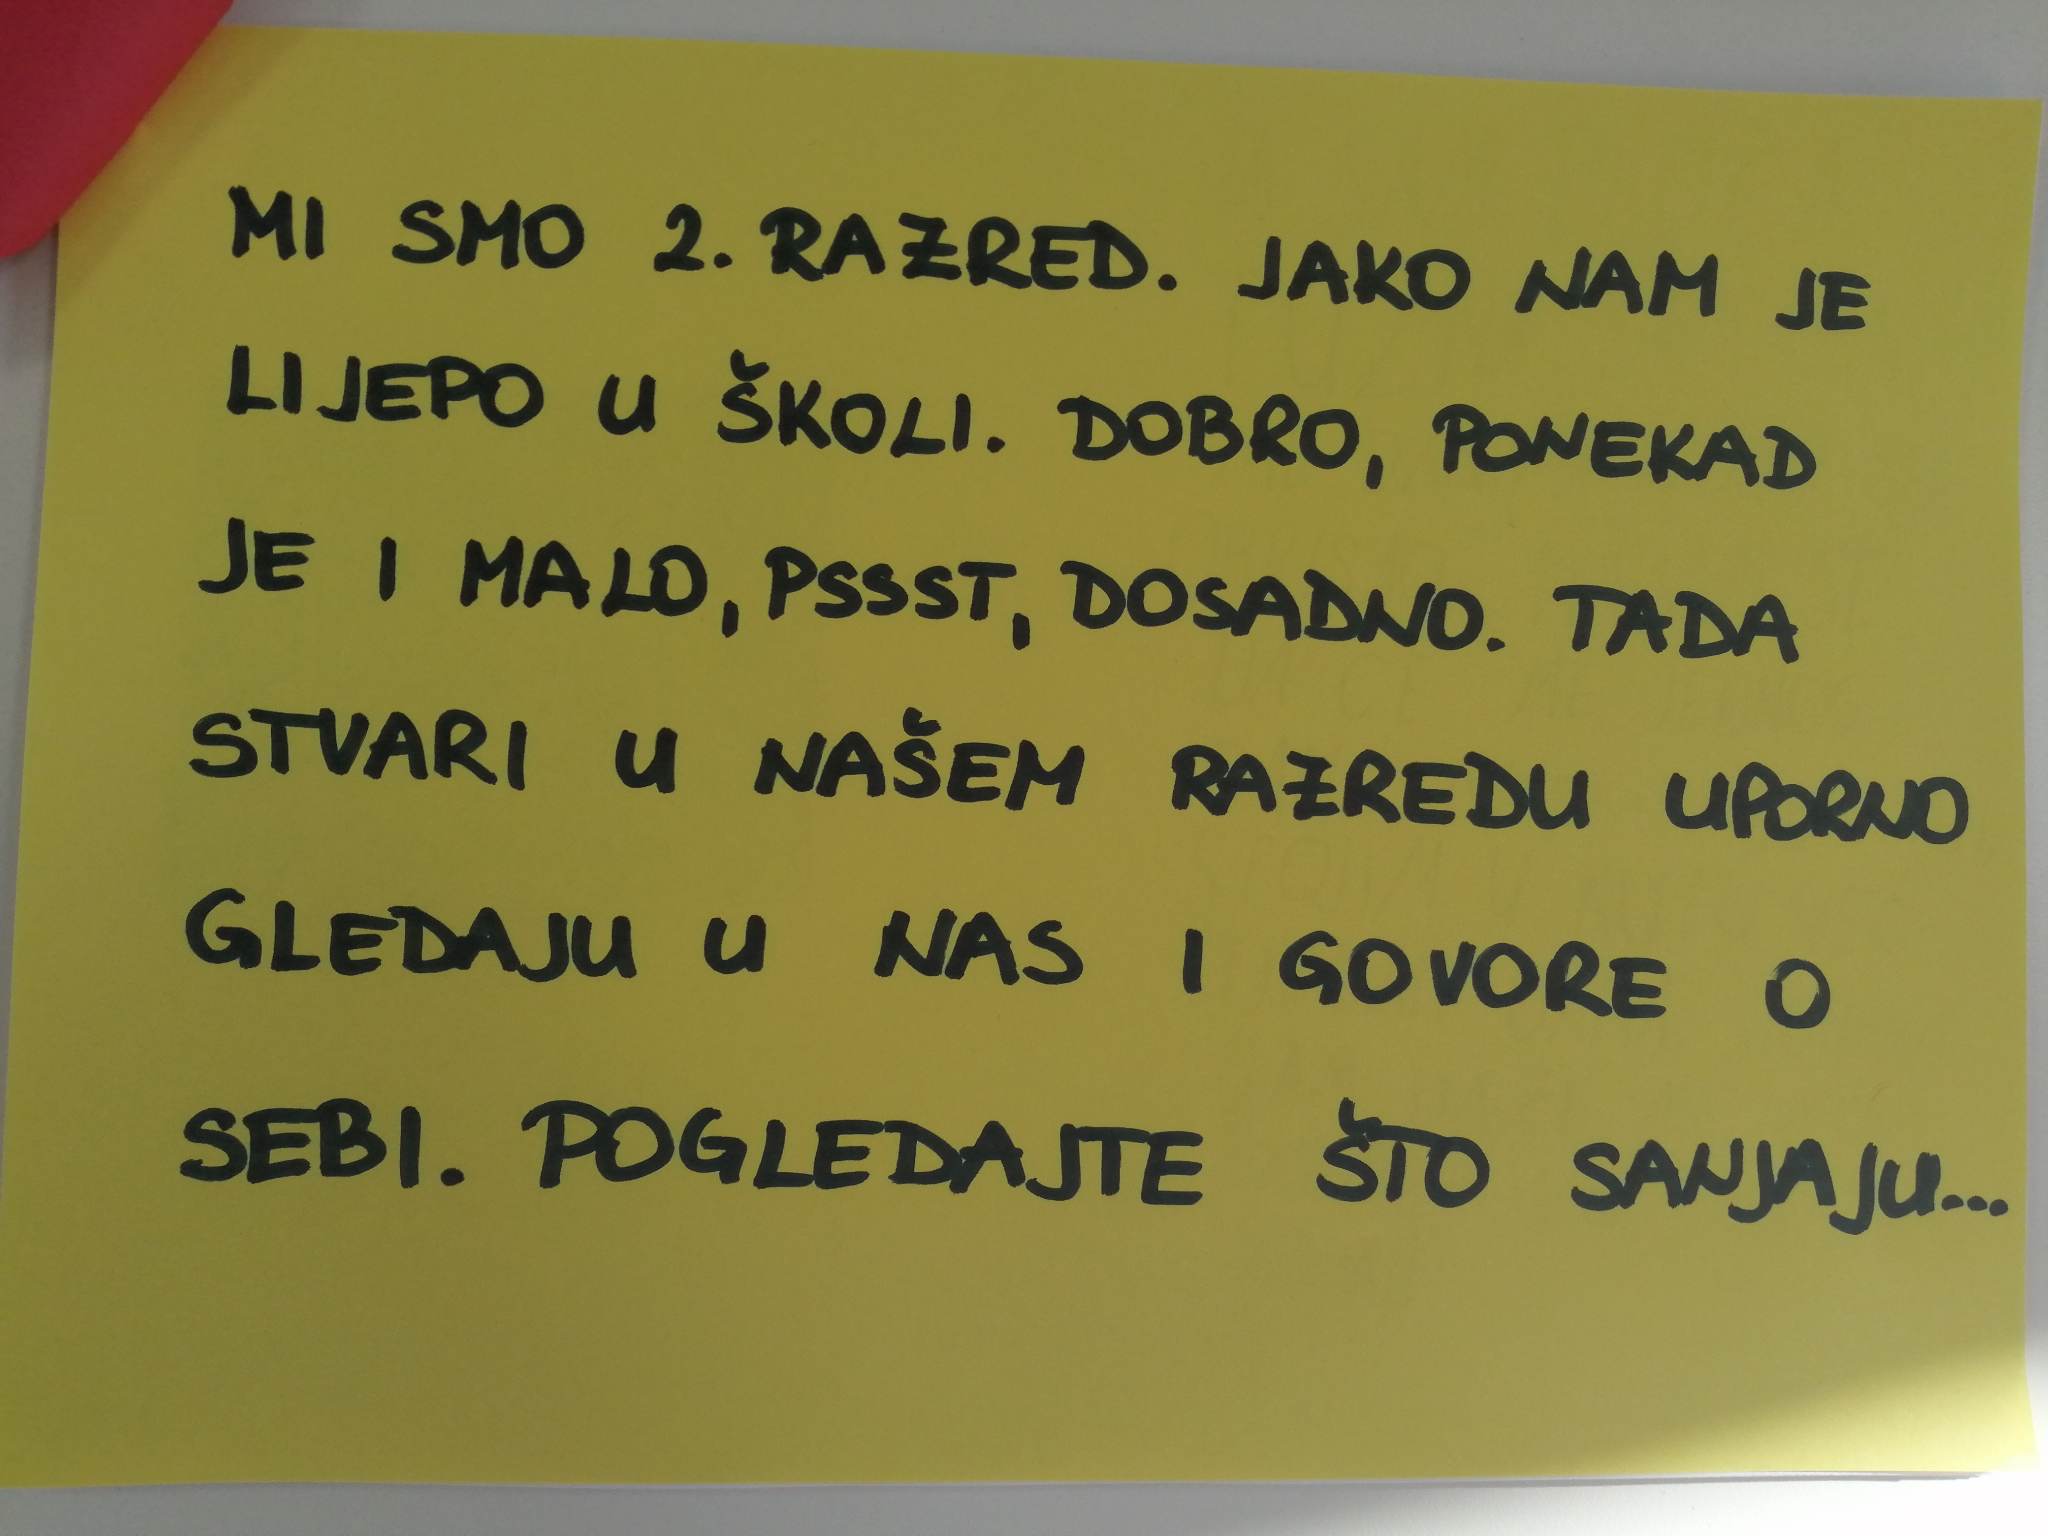 MI SMO 2. RAZRED. JAKO NAM JE
LIJEPO U ŠKOLI. DOBRO, PONEKAD
JE I MALO, PSSST, DOSADNO. TADA
STVARI U NAŠEM RAZREDU UPORNO
GLEDAJU U NAS I GOVORE O
SEBI. POGLEDAJTE ŠTO SANJAJU...